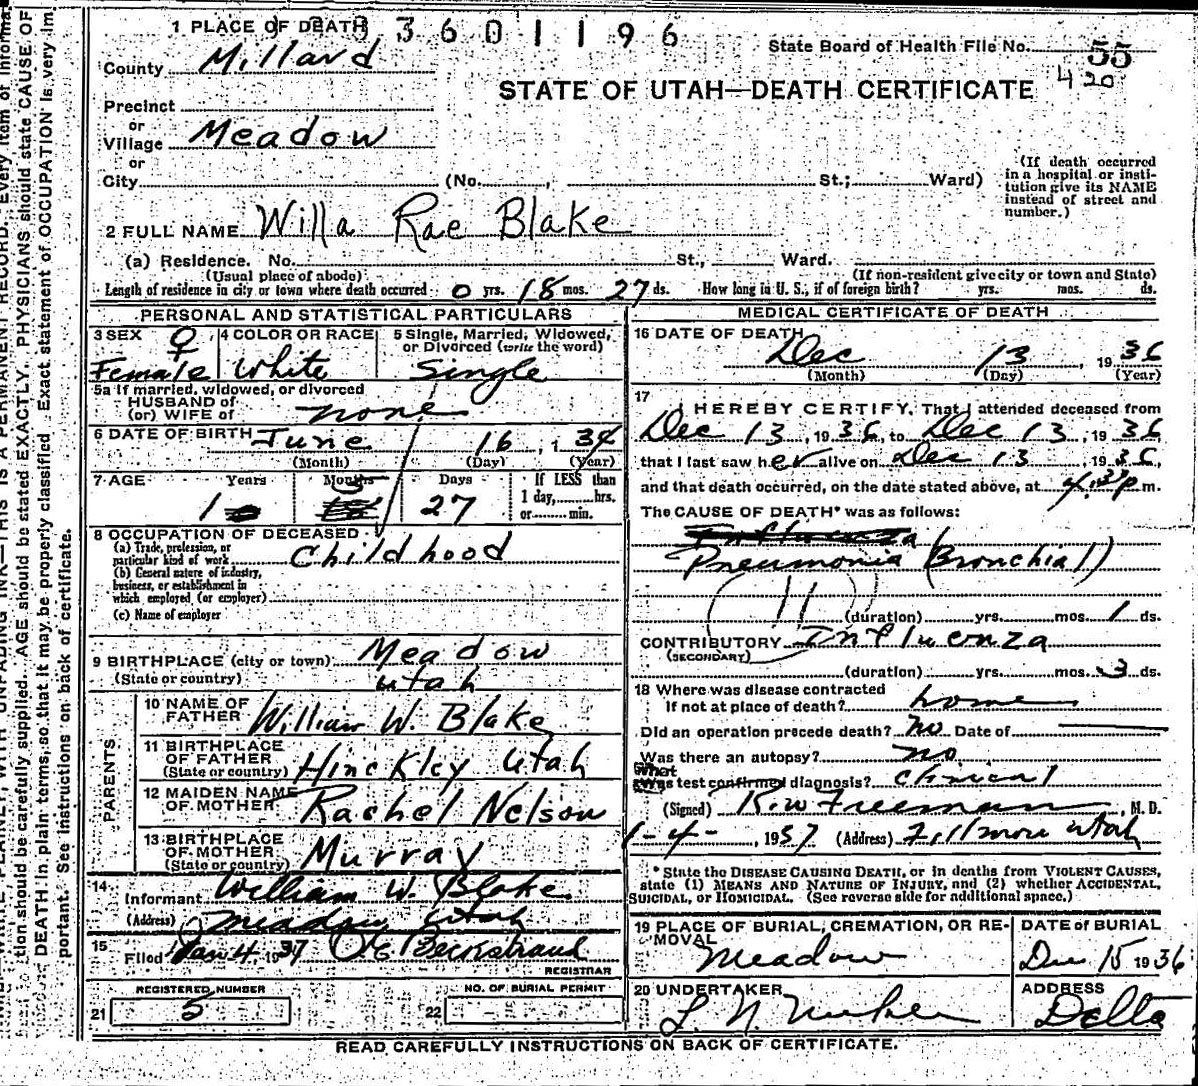 1 PLACE OF DEATH 3601196
State Board of Health File No. 55
420
County Millard
STATE OF UTAH—DEATH CERTIFICATE
Precinct
or
Village Meadow
or
City (No. , St.; Ward)
(If death occurred in a hospital or insti-
tution give its NAME
instead of street and
number.)
2 FULL NAME Willa Rae Blake
(a) Residence. No. St., Ward.
(Usual place of abode) (If non-resident give city or town and State)
Length of residence in city or town where death occurred 0 yrs. 18 mos. 27 ds. How long in U. S., if of foreign birth? yrs. mos. ds.
PERSONAL AND STATISTICAL PARTICULARS
3 SEX ♀ Female
4 COLOR OR RACE White
5 Single, Married, Widowed,
or Divorced (write the word)
Single
5a If married, widowed, or divorced
HUSBAND of
(or) WIFE of none
6 DATE OF BIRTH June 16, 134
(Month) (Day) (Year)
7 AGE Years Months Days If LESS than
1 5 27 1 day, hrs.
or min.
8 OCCUPATION OF DECEASED
(a) Trade, profession, or
particular kind of work Childhood
(b) General nature of industry,
business, or establishment in
which employed (or employer)
(c) Name of employer
9 BIRTHPLACE (city or town) Meadow
(State or country) Utah
PARENTS
10 NAME OF
FATHER William W. Blake
11 BIRTHPLACE
OF FATHER
(State or country) Hinckley Utah
12 MAIDEN NAME
OF MOTHER Rachel Nelson
13 BIRTHPLACE
OF MOTHER
(State or country) Murray
14
Informant William W. Blake
(Address) Meadow Utah
15
Filed Jan 4 1937 O E Beckstrand
REGISTRAR
REGISTERED NUMBER
21 5
NO. OF BURIAL PERMIT
22
MEDICAL CERTIFICATE OF DEATH
16 DATE OF DEATH
Dec 13 1936
(Month) (Day) (Year)
17
I HEREBY CERTIFY, That I attended deceased from
Dec 13, 1936, to Dec 13, 1936
that I last saw her alive on Dec 13 1936,
and that death occurred, on the date stated above, at p m.
The CAUSE OF DEATH* was as follows:
Influenza
Pneumonia (Bronchial)
11
(duration) yrs. mos. 1 ds.
CONTRIBUTORY Influenza
(SECONDARY)
(duration) yrs. mos. 3 ds.
18 Where was disease contracted
If not at place of death? home
Did an operation precede death? No Date of
Was there an autopsy? no
What
Was test confirmed diagnosis? Clinical
(Signed) R. W Freeman, M. D.
1-4-, 1937 (Address) Fillmore Utah
* State the DISEASE CAUSING DEATH, or in deaths from VIOLENT CAUSES,
state (1) MEANS AND NATURE OF INJURY, and (2) whether ACCIDENTAL,
SUICIDAL, or HOMICIDAL. (See reverse side for additional space.)
19 PLACE OF BURIAL, CREMATION, OR RE-
MOVAL
Meadow
DATE of BURIAL
Dec 15 1936
20 UNDERTAKER
L. N.
ADDRESS
Delta
READ CAREFULLY INSTRUCTIONS ON BACK OF CERTIFICATE.
tion should be carefully supplied. AGE should be stated EXACTLY. PHYSICIANS should state CAUSE OF
DEATH in plain terms, so that it may be properly classified. Exact statement of OCCUPATION is very im-
portant. See instructions on back of certificate.